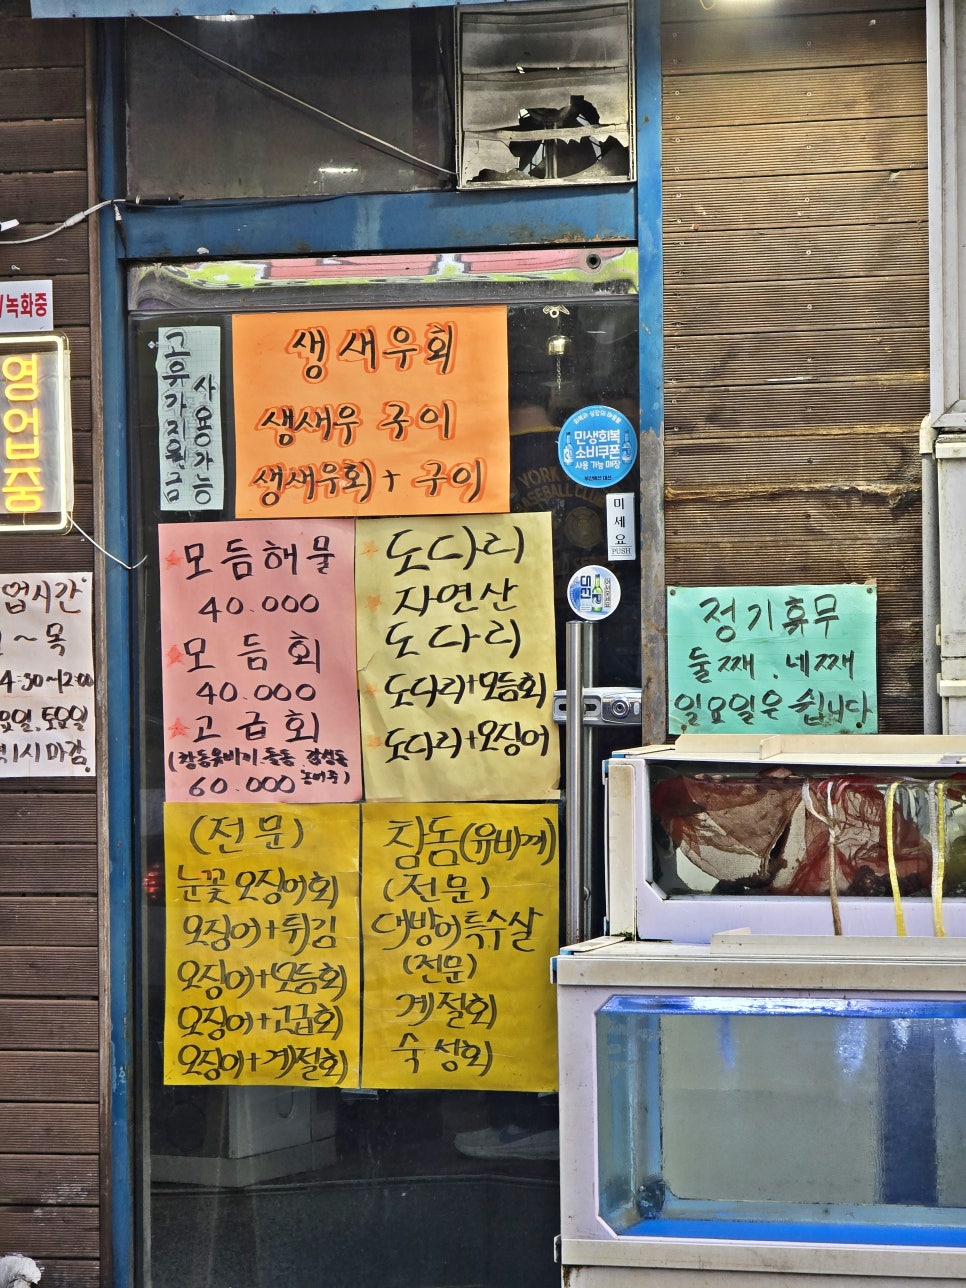 녹화중
영업중
업시간
~ 목
4:30~12:00
요일.토요일
시 마감
고유가지원금
사용가능
생새우회
생새우 구이
생새우회 + 구이
모듬해물
40.000
모듬회
40.000
고급회
60.000
도다리
자연산
도다리
도다리+모듬회
도다리+오징어
(전문)
눈꽃 오징어회
오징어+튀김
오징어+모듬회
오징어+고급회
오징어+계절회
참돔(유비끼)
(전문)
대방어특수살
(전문)
계절회
숙성회
YORK
BASEBALL CLUB
민생회복
소비쿠폰
사용 가능 매장
미세요
PUSH
정기휴무
둘째.네째
일요일은 쉽니다